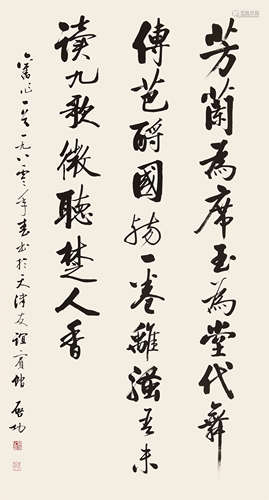 芳蘭為席玉為堂代舞
傳芭酹國殤一卷離騷吾未
读九歌微聽楚人香
舊作一首一九八零年書於天津友誼賓館 啓功